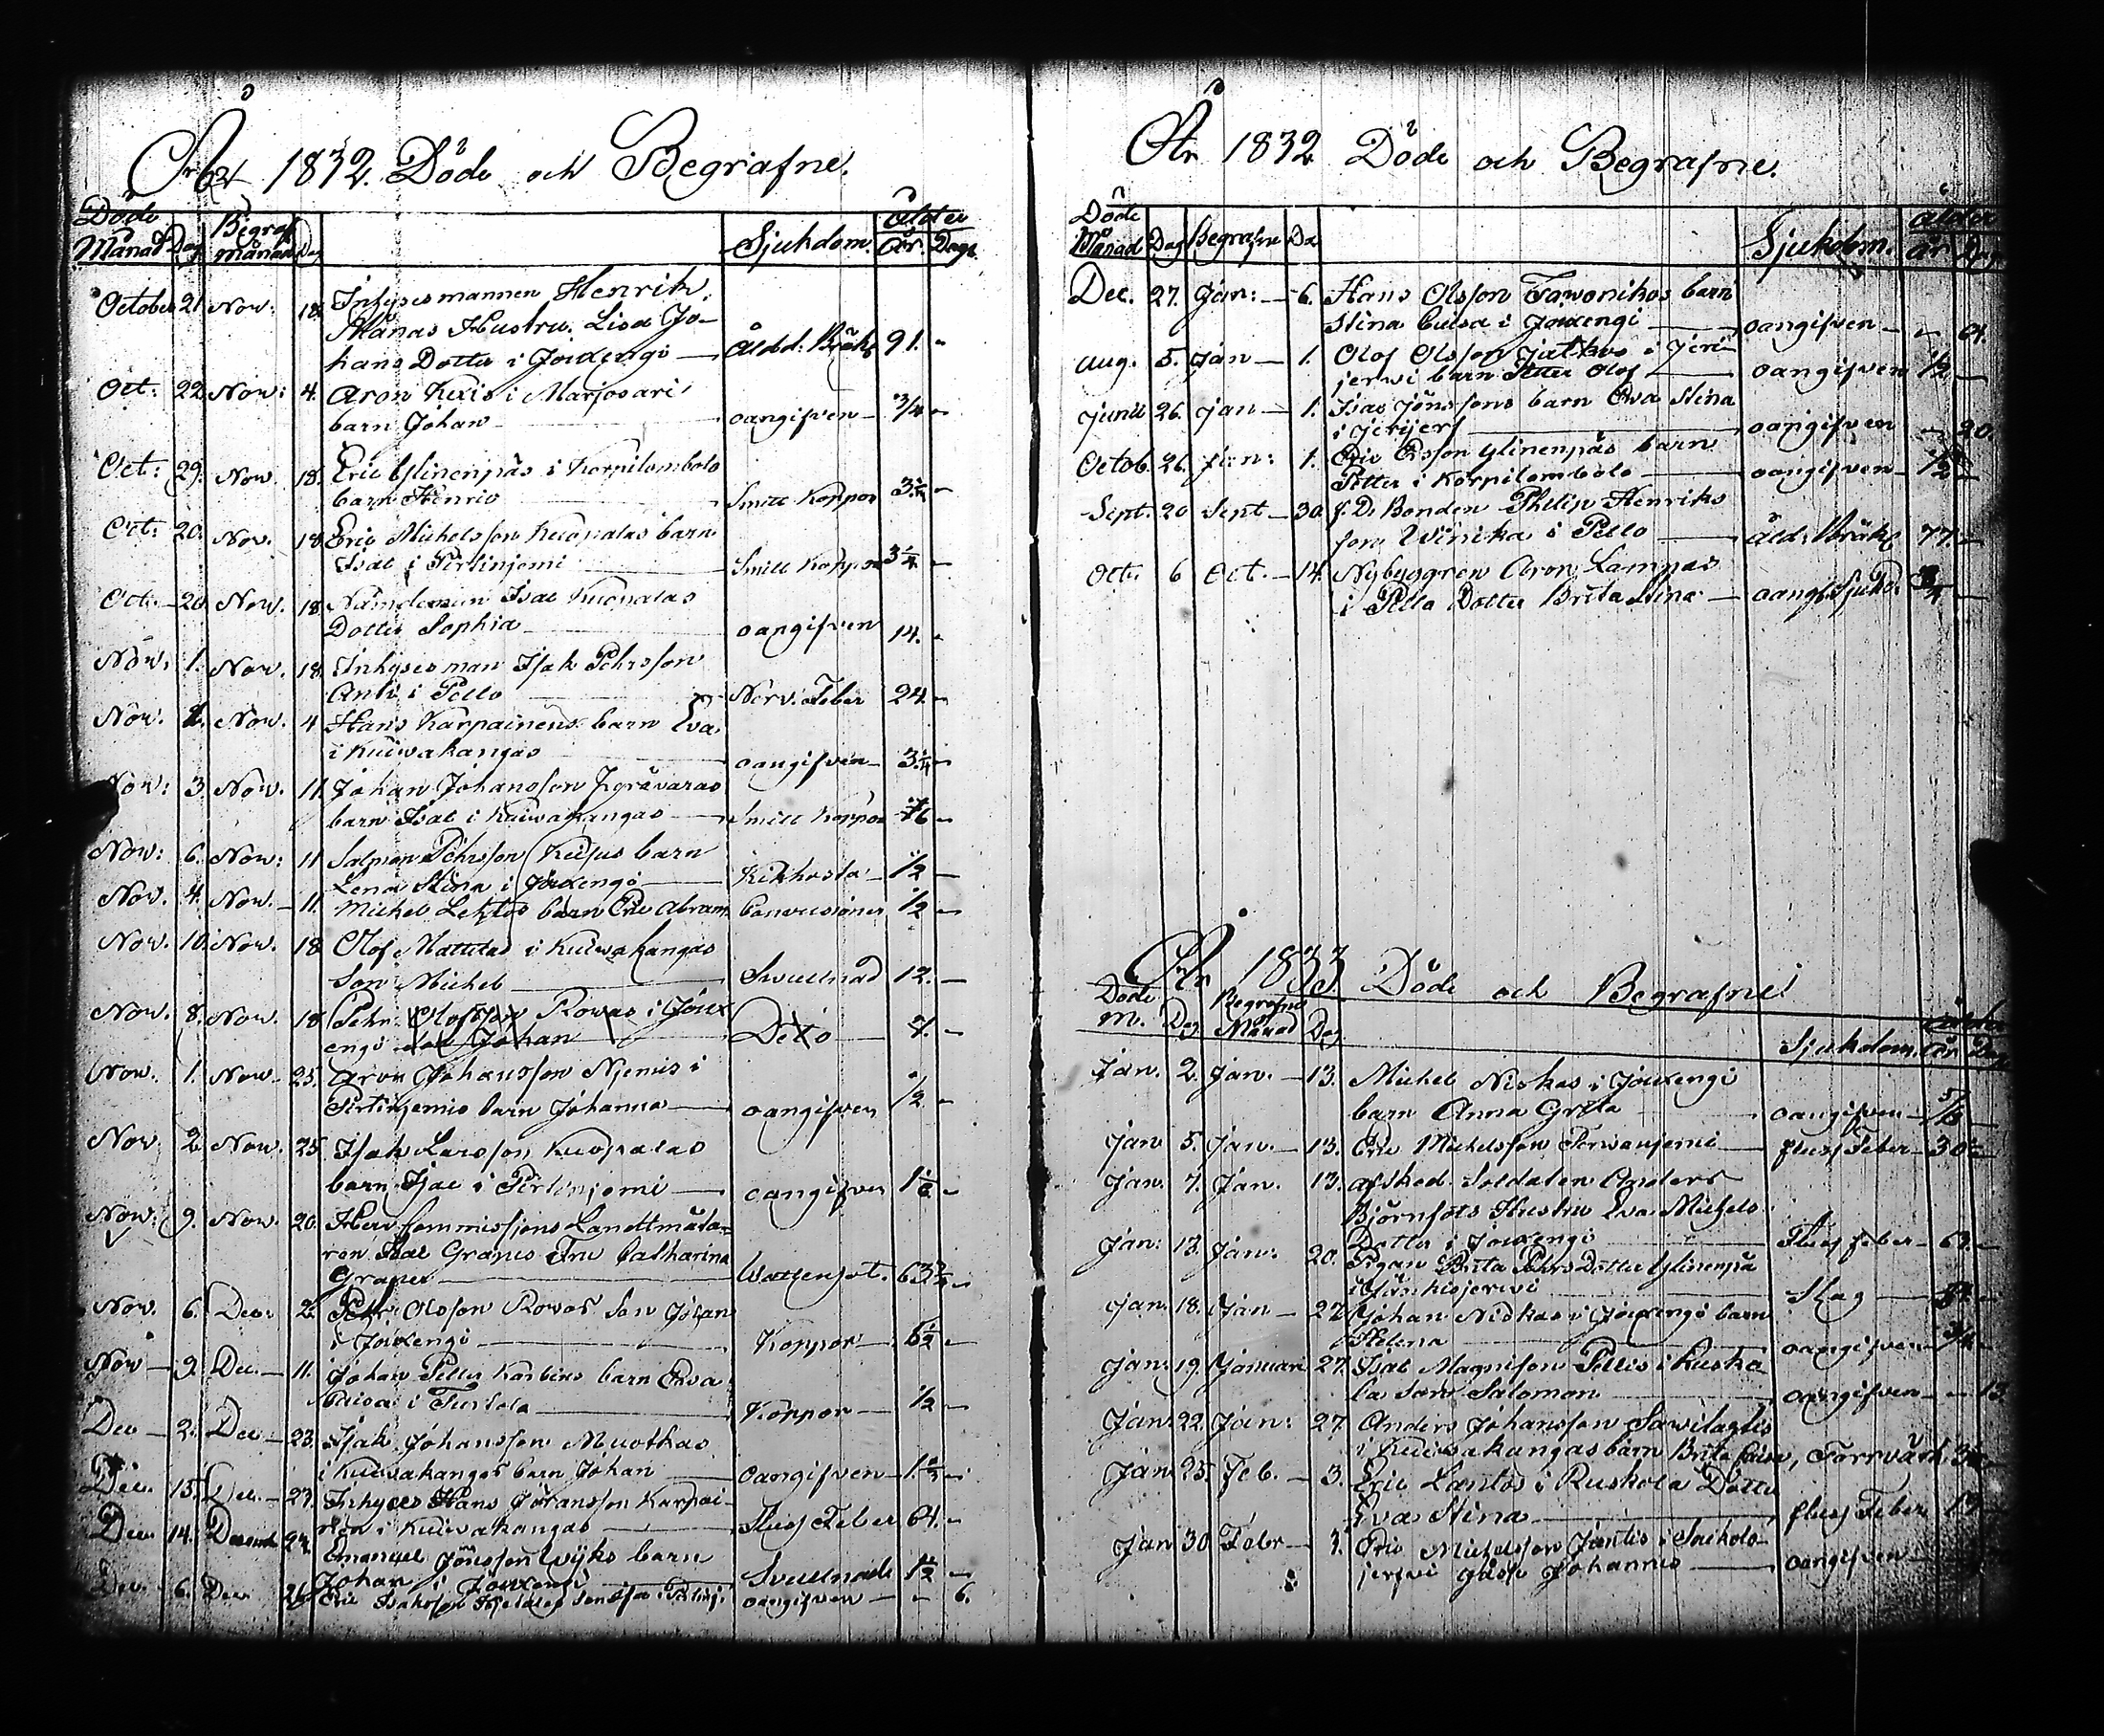 År 1832. Döde och Begrafne.
Döde Begraf Ålder
Månad Dag månad Dag Sjukdom. År. Dagr
October 21 Now. 18. Inhysesmannen Henrik
Hustru Lisa Jo-
hans Dotter i Jouxengi — Åldd: Bräkl 91. -
Oct. 22 Now: 4. Aron Kexis i Marjosari
barn Johan — oangifven — 3/4 -
Oct: 29. Now. 18. Eric Ylinenpäs i Korpilombolo
barn Henric — Smitt Koppor 3 1/4 -
Oct: 20. Nov. 18 Eric Michelsson Kuopalas barn
Isac i Pirtinjemi — Smitt Koppor 3 1/4 -
Oct. 20 Now. 18 Nämdeman Isac Kuopalas
Dotter Sophia — oangifven 14. -
Now. 1. Now. 18. Inhyses man Isak Pehrsson
Anti i Pello — Nerv. Feber 24. -
Now. Now. 4 Hans Karpainens barn Eva
i Kuiwakangas — oangifven — 3 1/4 -
Now: 3. Now. 11. Johan Johansson
barn Isac i Kuiwakangas — Smitt Koppor -
Now: 6. Now: 11 Salmon Pehrsson barn
Lena Stina i Jouxengi — Kikhosta — 1/2 -
Now. 4. Now. — 11. Michel Lehtos barn Eric Abram Convusioner 1/2 -
Now. 10. Now. 18 Olof Mattilas i Kuiwakangas
Son Michel — Svullnad 12. -
Now. 8. Now. 18 Pehr Olofsson Rowas i Joux
engi son Johan — Dito — -
Now. 1. Now. 25. Aron Johansson Njemis i
Pirtinjemis barn Johanna — oangifven 1/2 -
Nov 2. Now. 25. Isak Larsson Kuopalas
barn Isac i Pirtinjemi — oangifven -
Now. 9. Now. 20. Herr Commissions Landtmäta-
ren Isac Granes Fru Catharina
Graper — Wattensot. 63 3/4 -
Now. 6. Dec. 2. Pehr Olsson Rowas Son Johan
i Jouxengi — Koppor — 6 1/2 -
Now — 9. Dec. — 11. Johan Pelles barn Eva
Caisa i — Koppor — 1/2 -
Dec — 2. Dec — 23. Isak Johansson Muotkas
i Kuiwakangas barn Johan — oangifven — -
Dec. 15. Dec. — 23. Inhyses Hans Göransson Karpai-
nen i Kuiwakangas — Fluss Feber 64. -
Dec. 14. Decemb Emanuel Jönsson Wyks barn
Johan i Jouxengi — Svullnad 1 1/2 -
Dec. 6. Dec. 26. Eric Isaksson Son Isac i Pirtinj. oangifven — - 6.
År 1832 Döde och Begrafne.
Döde Ålder
Månad Dag Begrafne Da Sjukdom. år. Dag
Dec. 27. Jan: — 6. Hans Olsson Tawonikos barn
Stina Cuisa i Jouxengi — oangifven —
Aug. 5. Jan — 1. Olof Olsson i Jeri
jerwi barn Petter Olof — oangifven 1/2 —
Junii 26. Jan — 1. Isac Jönssons barn Eva Stina
i Jerijerf — oangifven — 20.
Octob. 26. Jan: 1. Eric Ersson Ylinenpäs barn
Petter i Korpilombolo — oangifven — 1/2 -
Sept. 20 Sept — 30. f. D. Bonden Philip Henriks
son Winika i Pello — Åld: Bräkl 77. -
Oct. 6 Oct. — 14. Nybyggren Aron Lampas
i Pello Dotter Brita Stina — oangf. Sjukd. —
År 1833. Döde och Begrafne
Döde Begrafne Ålder
M. Dag Månad Dag Sjukdom. År Dag
Jan. 2. Jan. — 13. Michel Niskas i Jouxengi
barn Anna Greta — oangifven — -
Jan 5. Jan. — 13. Eric Michelsson Terwanjemi — fluss Feber — 30 -
Jan. 7. Jan. 13. afsked. Soldaten Anders
Björnfots Hustru Eva Michels
Dotter i Jouxengi — Fluss feber — -
Jan: 13. Jan: 20. Pigan Brita Pehrs Dotter Ylinenpä
i — Slag — -
Jan. 18. Jan — 27. Johan Niskas i Jouxengi barn
Helena — oangifven — 3/4 -
Jan: 19. Januari 27. Isac Magnisson Pellis i Ruska
la son Salomon — oangifven — - 13.
Jan: 22. Jan: 27. Anders Johansson
i Kuiwakangas barn Brita Caisa, Torrvärk -
Jan 25. Feb. — 3. Eric Lantos i Ruskola Dotter
Eva Stina — fluss Feber
Jan 30. Febr — 3. Eric Michelsson
jerfwi Johannes — oangifven